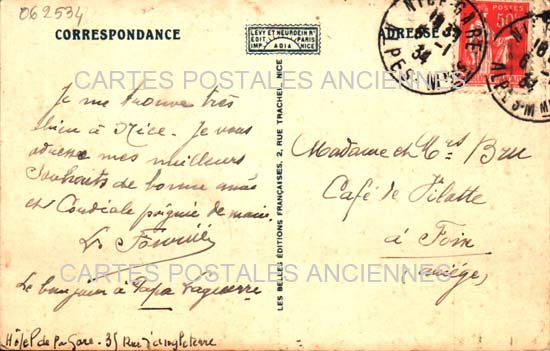 062534
CORRESPONDANCE
LEVY ET NEURDEIN Rs
EDIT. PARIS
IMP. ADIA NICE
ADRESSE
NICE-GARE
34
ALPES-M MES
POSTES
50c
Je me trouve très
bien à Nice. Je vous
adresse mes meilleurs
souhaits de bonne année
et Cordiale poignée de main.
Le bonjour à Papa Laguerre
Hôtel de la Gare - 35 Rue d'Angleterre
LES BELLES ÉDITIONS FRANÇAISES, 2, RUE TRACHEL, NICE
Madame et Mrs Bru
Café de Pilatte
à Foix
(Ariège)
CARTES POSTALES ANCIENNES
CARTES POSTALES ANCIENNES